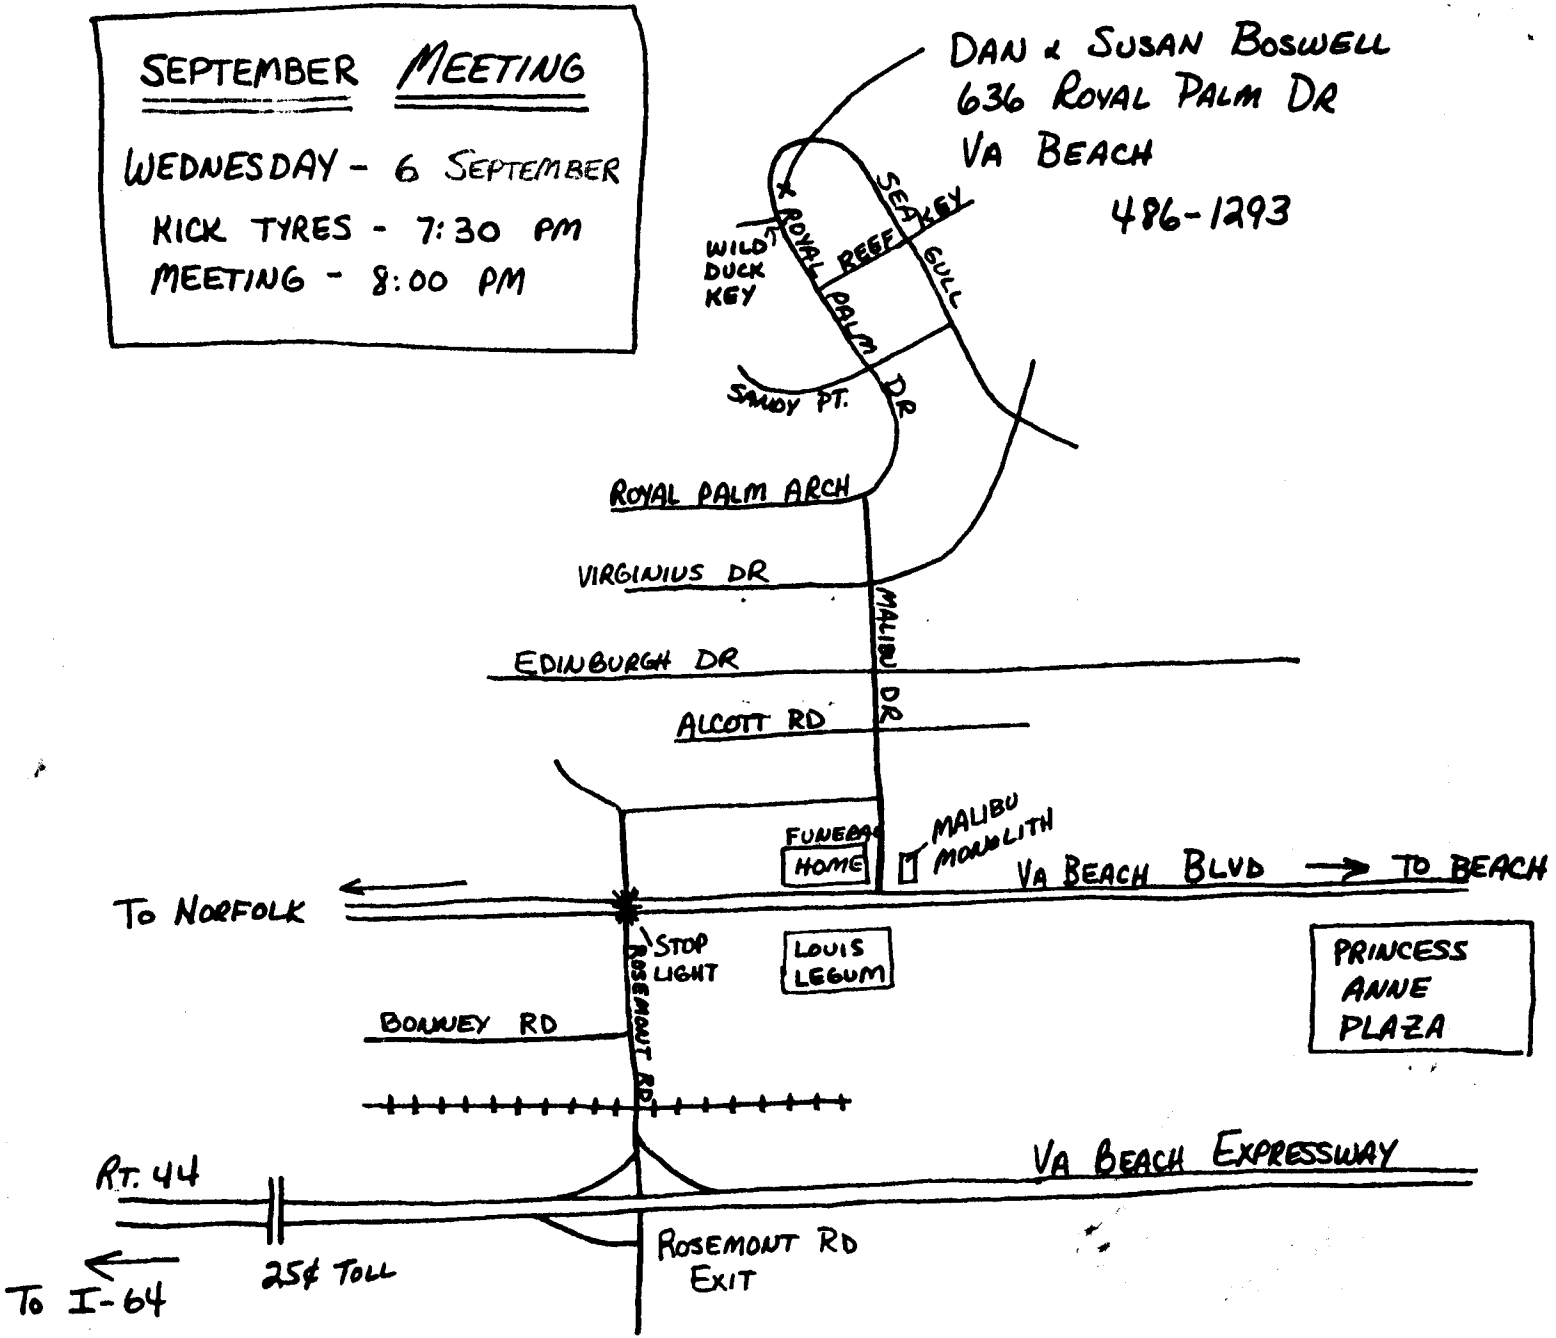 SEPTEMBER MEETING
WEDNESDAY - 6 SEPTEMBER
KICK TYRES - 7:30 PM
MEETING - 8:00 PM
DAN & SUSAN BOSWELL
636 ROYAL PALM DR
VA BEACH
486-1293
SEA GULL
REEF KEY
ROYAL PALM DR
WILD
DUCK
KEY
SANDY PT.
ROYAL PALM ARCH
VIRGINIUS DR
MALIBU DR
EDINBURGH DR
ALCOTT RD
FUNERAL
HOME
MALIBU
MONOLITH
VA BEACH BLVD → TO BEACH
← TO NORFOLK
STOP
LIGHT
LOUIS
LEGUM
PRINCESS
ANNE
PLAZA
ROSEMONT RD
BONNEY RD
RT. 44
VA BEACH EXPRESSWAY
25¢ TOLL
ROSEMONT RD
EXIT
← TO I-64